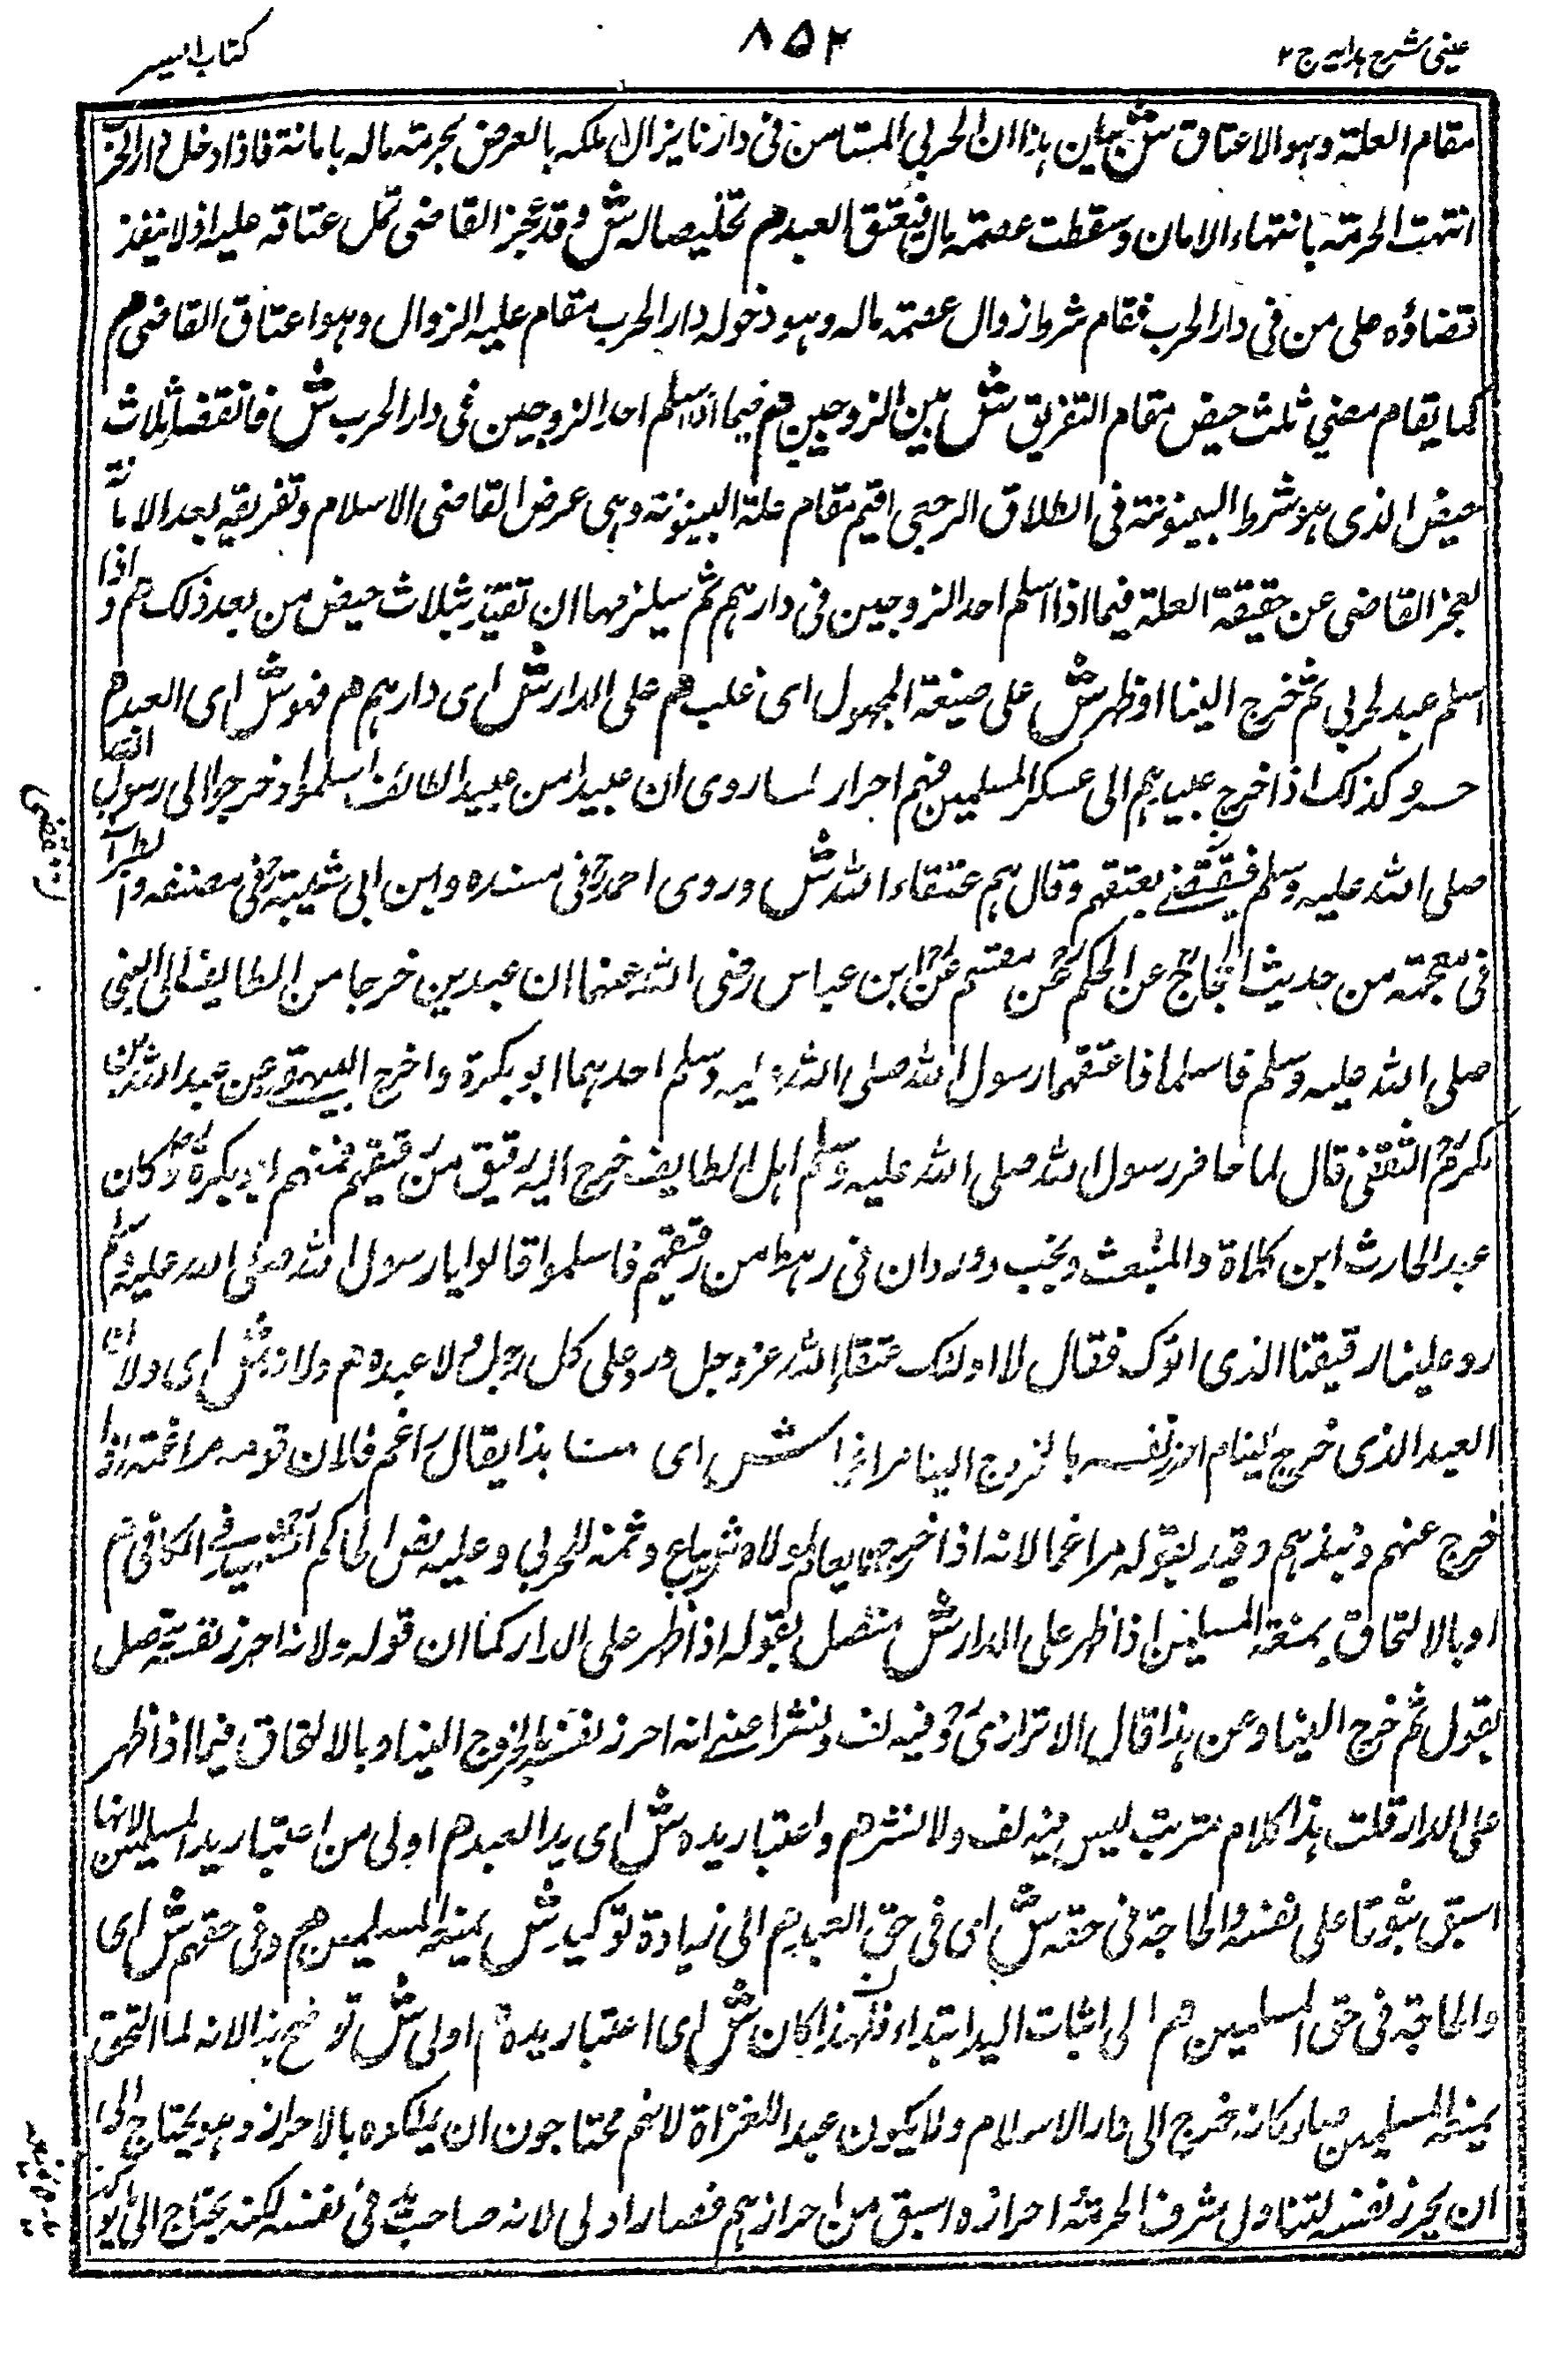 عینی شرح ہدایہ ج ۲
۸۵۲
کتاب السیر
مقام العلة وہو الاعتاق ش بیان ہذا ان الحربی المستامن فی دارنا یزال ملکہ بالعرض بحرمتہ مالہ بامانة فاذا دخل دار الحرب
انتہت الحرمتہ بانتہاء الامان وسقطت عصمتہ مالہ فیعتق العبد م تخلیصا لہ ش وقد عجز القاضی عن اعتاقہ علیہ اذ لا ینفذ
قضاؤہ علی من فی دار الحرب فقام شرط زوال عصمتہ مالہ وہو دخولہ دار الحرب مقام علیہ الزوال وہو اعتاق القاضی م
کما یقام مضی ثلث حیض مقام التفریق ش بین الزوجین م فیما اذا اسلم احد الزوجین فی دار الحرب ش فانقضاء ثلاث
حیض الذی ہو شرط البینونة فی الطلاق الرجعی اقیم مقام علة البینونة وہی عرض القاضی الاسلام وتفریقہ بعد الاباء
لعجز القاضی عن حقیقة العلة فیما اذا اسلم احد الزوجین فی دارہم ثم یلزمہا ان تعتد بثلاث حیض من بعد ذلک م واذا
اسلم عبد لحربی ثم خرج الینا او ظہر ش علی صیغة المجہول ای غلب م علی الدار ش ای دارہم م فہو ش ای العبد م
حر وکذلک اذا خرج عبیدہم الی عسکر المسلمین فہم احرار لما روی ان عبیدا من عبید الطائف اسلموا وخرجوا الی رسول اللہ
صلی اللہ علیہ وسلم فقضی بعتقہم وقال ہم عتقاء اللہ ش وروی احمد فی مسندہ وابن ابی شیبة فی مصنفہ والطبرانی
فی معجمہ من حدیث الحجاج عن الحکم عن مقسم عن ابن عباس رضی اللہ عنہما ان عبدین خرجا من الطایف الی النبی
صلی اللہ علیہ وسلم فاسلما فاعتقہما رسول اللہ صلی اللہ علیہ وسلم احدہما ابو بکرة واخرج البیہقی عن عبد اللہ بن
مکرم الثقفی قال لما حاصر رسول اللہ صلی اللہ علیہ وسلم اہل الطایف خرج الیہ رقیق من رقیقہم فمنہم ابو بکرة وکان
عبد الحارث ابن کلدة والمنبعث ویحنب ووردان فی رہط من رقیقہم فاسلموا قالوا یا رسول اللہ صلی اللہ علیہ وسلم
رد علینا رقیقنا الذی اتوک فقال لا اولئک عتقاء اللہ عز وجل ورد علی کل رجل ولاء عبدہ م ولانہ ش ای ولان
العبد الذی خرج الینا م احرز نفسہ بالخروج الینا مراغما ش ای منابذا یقال راغم فلان قومہ مراغمتہ اذا
خرج عنہم ونبذہم وقید بقولہ مراغما لانہ اذا خرج طایعا لمولاہ یباع وثمنہ للحربی وعلیہ نص الحاکم الشہید فی الکافی م
او بالالتحاق بمنعة المسلمین اذا ظہر علی الدار ش متصل بقولہ اذا ظہر علی الدار کما ان قولہ ولانہ احرز نفسہ متصل
بقول ثم خرج الینا وعن ہذا قال الاترازی وفیہ لف ونشر اعنی انہ احرز نفسہ بالخروج الینا وبالالتحاق فیما اذا ظہر
علی الدار قلت ہذا کلام مترتب لیس فیہ لف ولا نشر م واعتبار یدہ ش ای ید العبد م اولی من اعتبار ید المسلمین لانہا
اسبق ثبوتا علی نفسہ والحاجة فی حقہ ش ای فی حق العبد م الی زیادة توکید ش بمنعة المسلمین م وفی حقہم ش ای
والحاجة فی حق المسلمین م الی اثبات الید ابتداء فلہذا کان ش ای اعتبار یدہ م اولی ش توضیح ہذا لانہ لما التحق
بمنعة المسلمین صار کانہ خرج الی دار الاسلام ولا یکون عبدا للغزاة لانہم محتاجون ان یملکوہ بالاحراز وہو یحتاج الی
ان یحرز نفسہ لتناول شرف الحریة واحرازہ اسبق من احرازہم فصار اولی لانہ صاحب ید فی نفسہ لکنہ یحتاج الی